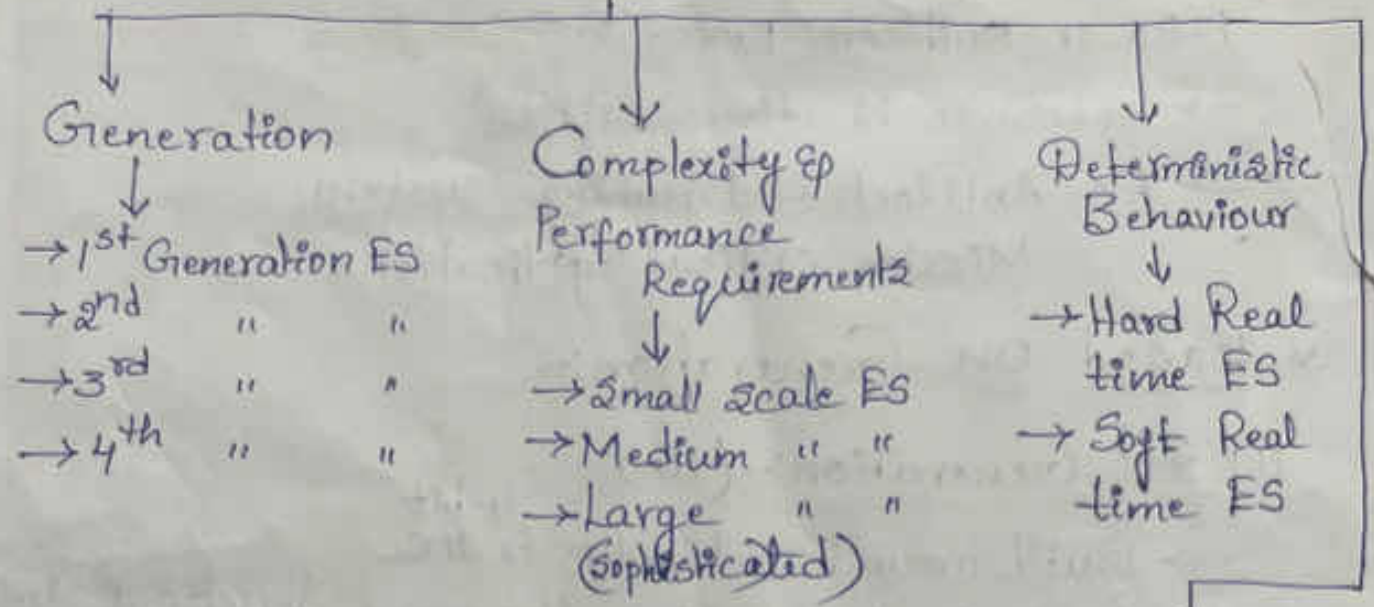 Generation
→ 1st Generation ES
→ 2nd " "
→ 3rd " "
→ 4th " "
Complexity &
Performance
Requirements
→ Small Scale ES
→ Medium " "
→ Large " "
(Sophisticated)
Deterministic
Behaviour
→ Hard Real
time ES
→ Soft Real
time ES